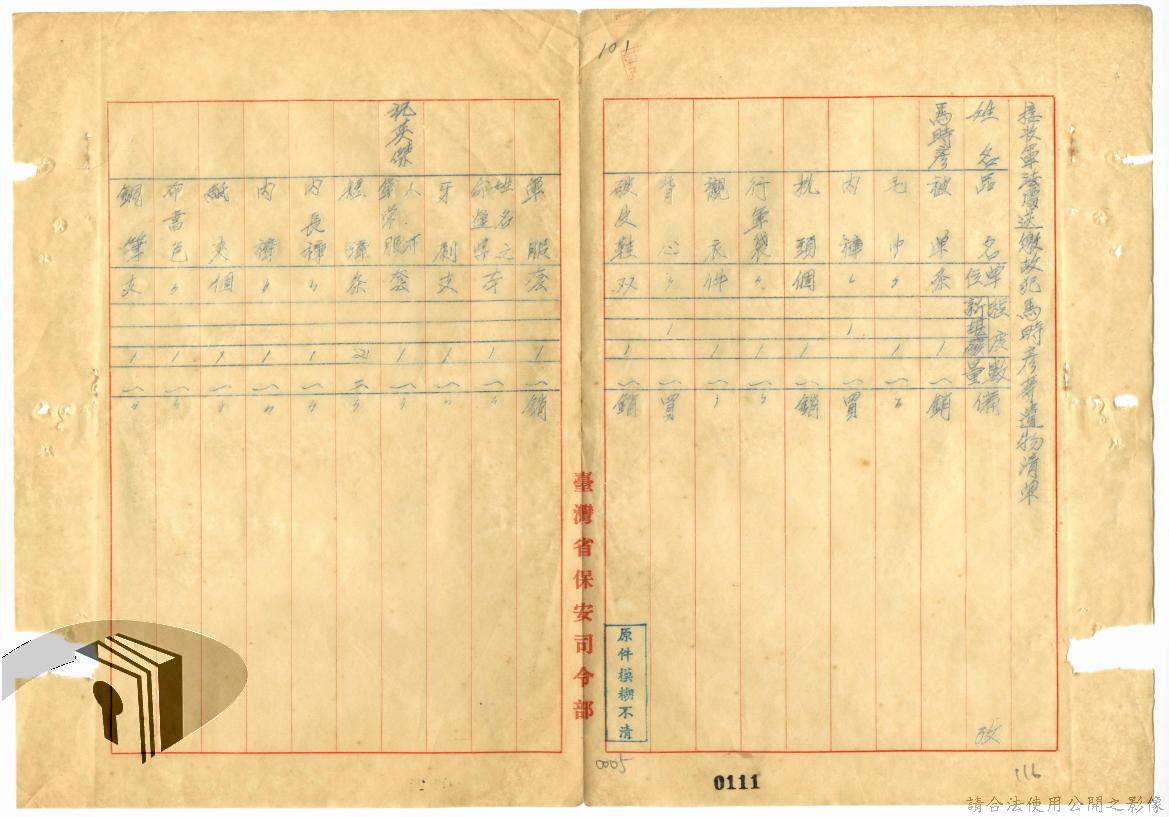 101
接收軍法處送繳故犯馬時彥等遺物清單
姓名 品名 單位 程度 新 堪 破 數量 備 攷
馬時彥 被單 条 1 一 銷
毛巾 〃 1 一 〃
內褲 〃 1 一 買
枕頭 個 1 一 銷
行軍袋 〃 1 一 〃
襯衣 件 1 一 〃
背心 〃 1 一 買
破皮鞋 双 1 一 銷
軍服 套 1 一 銷
姓名之 本 1 一 〃
牙刷 支 1 一 〃
祝英傑 軍常服 套 1 一 〃
褲 条 2 二 〃
內長褲 〃 1 一 〃
內褲 〃 1 一 〃
夾 個 1 一 〃
布書包 〃 1 一 〃
鋼筆 支 1 一 〃
臺灣省保安司令部
原件模糊不清
0005
0111
116
請合法使用公開之影像